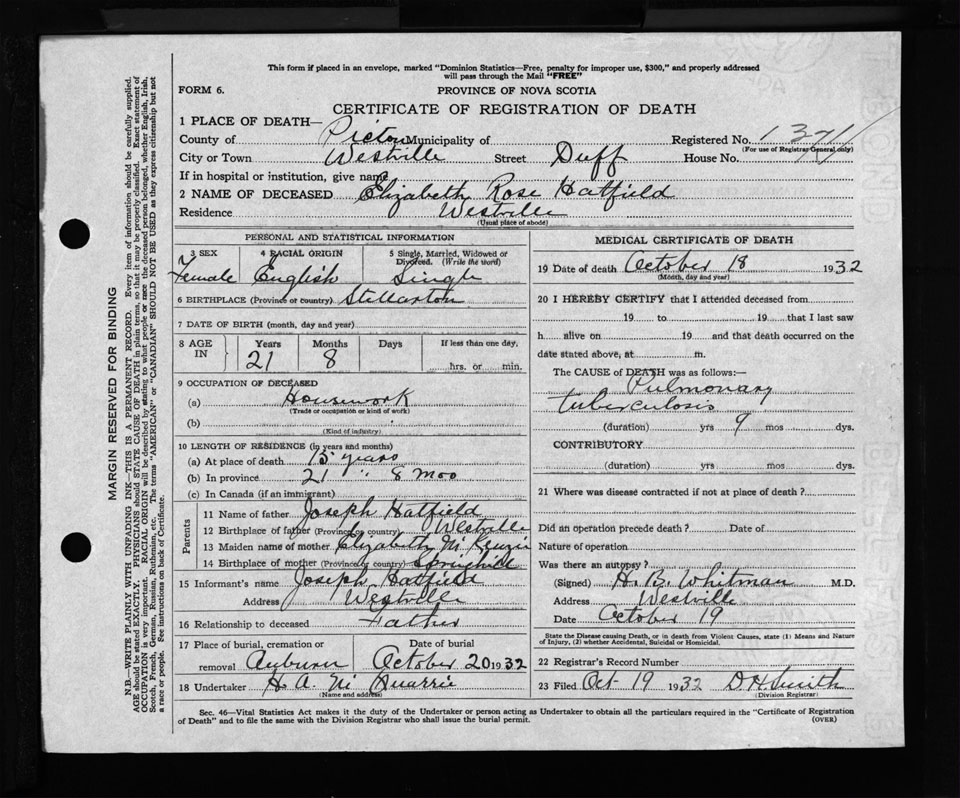 This form if placed in an envelope, marked "Dominion Statistics—Free, penalty for improper use, $300," and properly addressed
will pass through the Mail "FREE"
FORM 6. PROVINCE OF NOVA SCOTIA
CERTIFICATE OF REGISTRATION OF DEATH
1 PLACE OF DEATH—
County of Pictou Municipality of Registered No. 1371
(For use of Registrar General only)
City or Town Westville Street Duff House No.
If in hospital or institution, give name
2 NAME OF DECEASED Elizabeth Rose Hatfield
Residence Westville
(Usual place of abode)
PERSONAL AND STATISTICAL INFORMATION
3 SEX 4 RACIAL ORIGIN 5 Single, Married, Widowed or
Divorced. (Write the word)
Female English Single
6 BIRTHPLACE (Province or country) Stellarton
7 DATE OF BIRTH (month, day and year)
8 AGE IN Years Months Days If less than one day,
21 8 hrs. or min.
9 OCCUPATION OF DECEASED
(a) Housework
(Trade or occupation or kind of work)
(b)
(Kind of industry)
10 LENGTH OF RESIDENCE (in years and months)
(a) At place of death 15 years
(b) In province 21 " 8 mos
(c) In Canada (if an immigrant)
Parents
11 Name of father Joseph Hatfield
12 Birthplace of father (Province or country) Westville
13 Maiden name of mother Elizabeth McKenzie
14 Birthplace of mother (Province or country) Springhill
15 Informant's name Joseph Hatfield
Address Westville
16 Relationship to deceased Father
17 Place of burial, cremation or Date of burial
removal Auburn October 20 1932
18 Undertaker H. A. Mc Quarrie
(Name and address)
MEDICAL CERTIFICATE OF DEATH
19 Date of death October 18 1932
(Month, day and year)
20 I HEREBY CERTIFY that I attended deceased from
19 to 19 that I last saw
h alive on 19 and that death occurred on the
date stated above, at m.
The CAUSE of DEATH was as follows:
Pulmonary
tuberculosis
(duration) yrs 9 mos dys.
CONTRIBUTORY
(duration) yrs. mos dys.
21 Where was disease contracted if not at place of death?
Did an operation precede death? Date of
Nature of operation
Was there an autopsy?
(Signed) H. B. Whitman M.D.
Address Westville
Date October 19
State the Disease causing Death, or in death from Violent Causes, state (1) Means and Nature
of Injury, (2) whether Accidental, Suicidal or Homicidal.
22 Registrar's Record Number
23 Filed Oct 19 1932 D. H. Smith
(Division Registrar)
Sec. 46—Vital Statistics Act makes it the duty of the Undertaker or person acting as Undertaker to obtain all the particulars required in the "Certificate of Registration
of Death" and to file the same with the Division Registrar who shall issue the burial permit. (OVER)
MARGIN RESERVED FOR BINDING
N.B.—WRITE PLAINLY WITH UNFADING INK—THIS IS A PERMANENT RECORD. Every item of information should be carefully supplied.
AGE should be stated EXACTLY. PHYSICIANS should STATE CAUSE OF DEATH in plain terms, so that it may be properly classified. Exact statement of
OCCUPATION is very important. RACIAL ORIGIN will be described by stating to what people or race the deceased person belonged, whether English, Irish,
Scotch, French, German, Russian, Ruthenian, etc. The terms "AMERICAN" or "CANADIAN" SHOULD NOT BE USED as they express citizenship but not
a race or people. See instructions on back of Certificate.